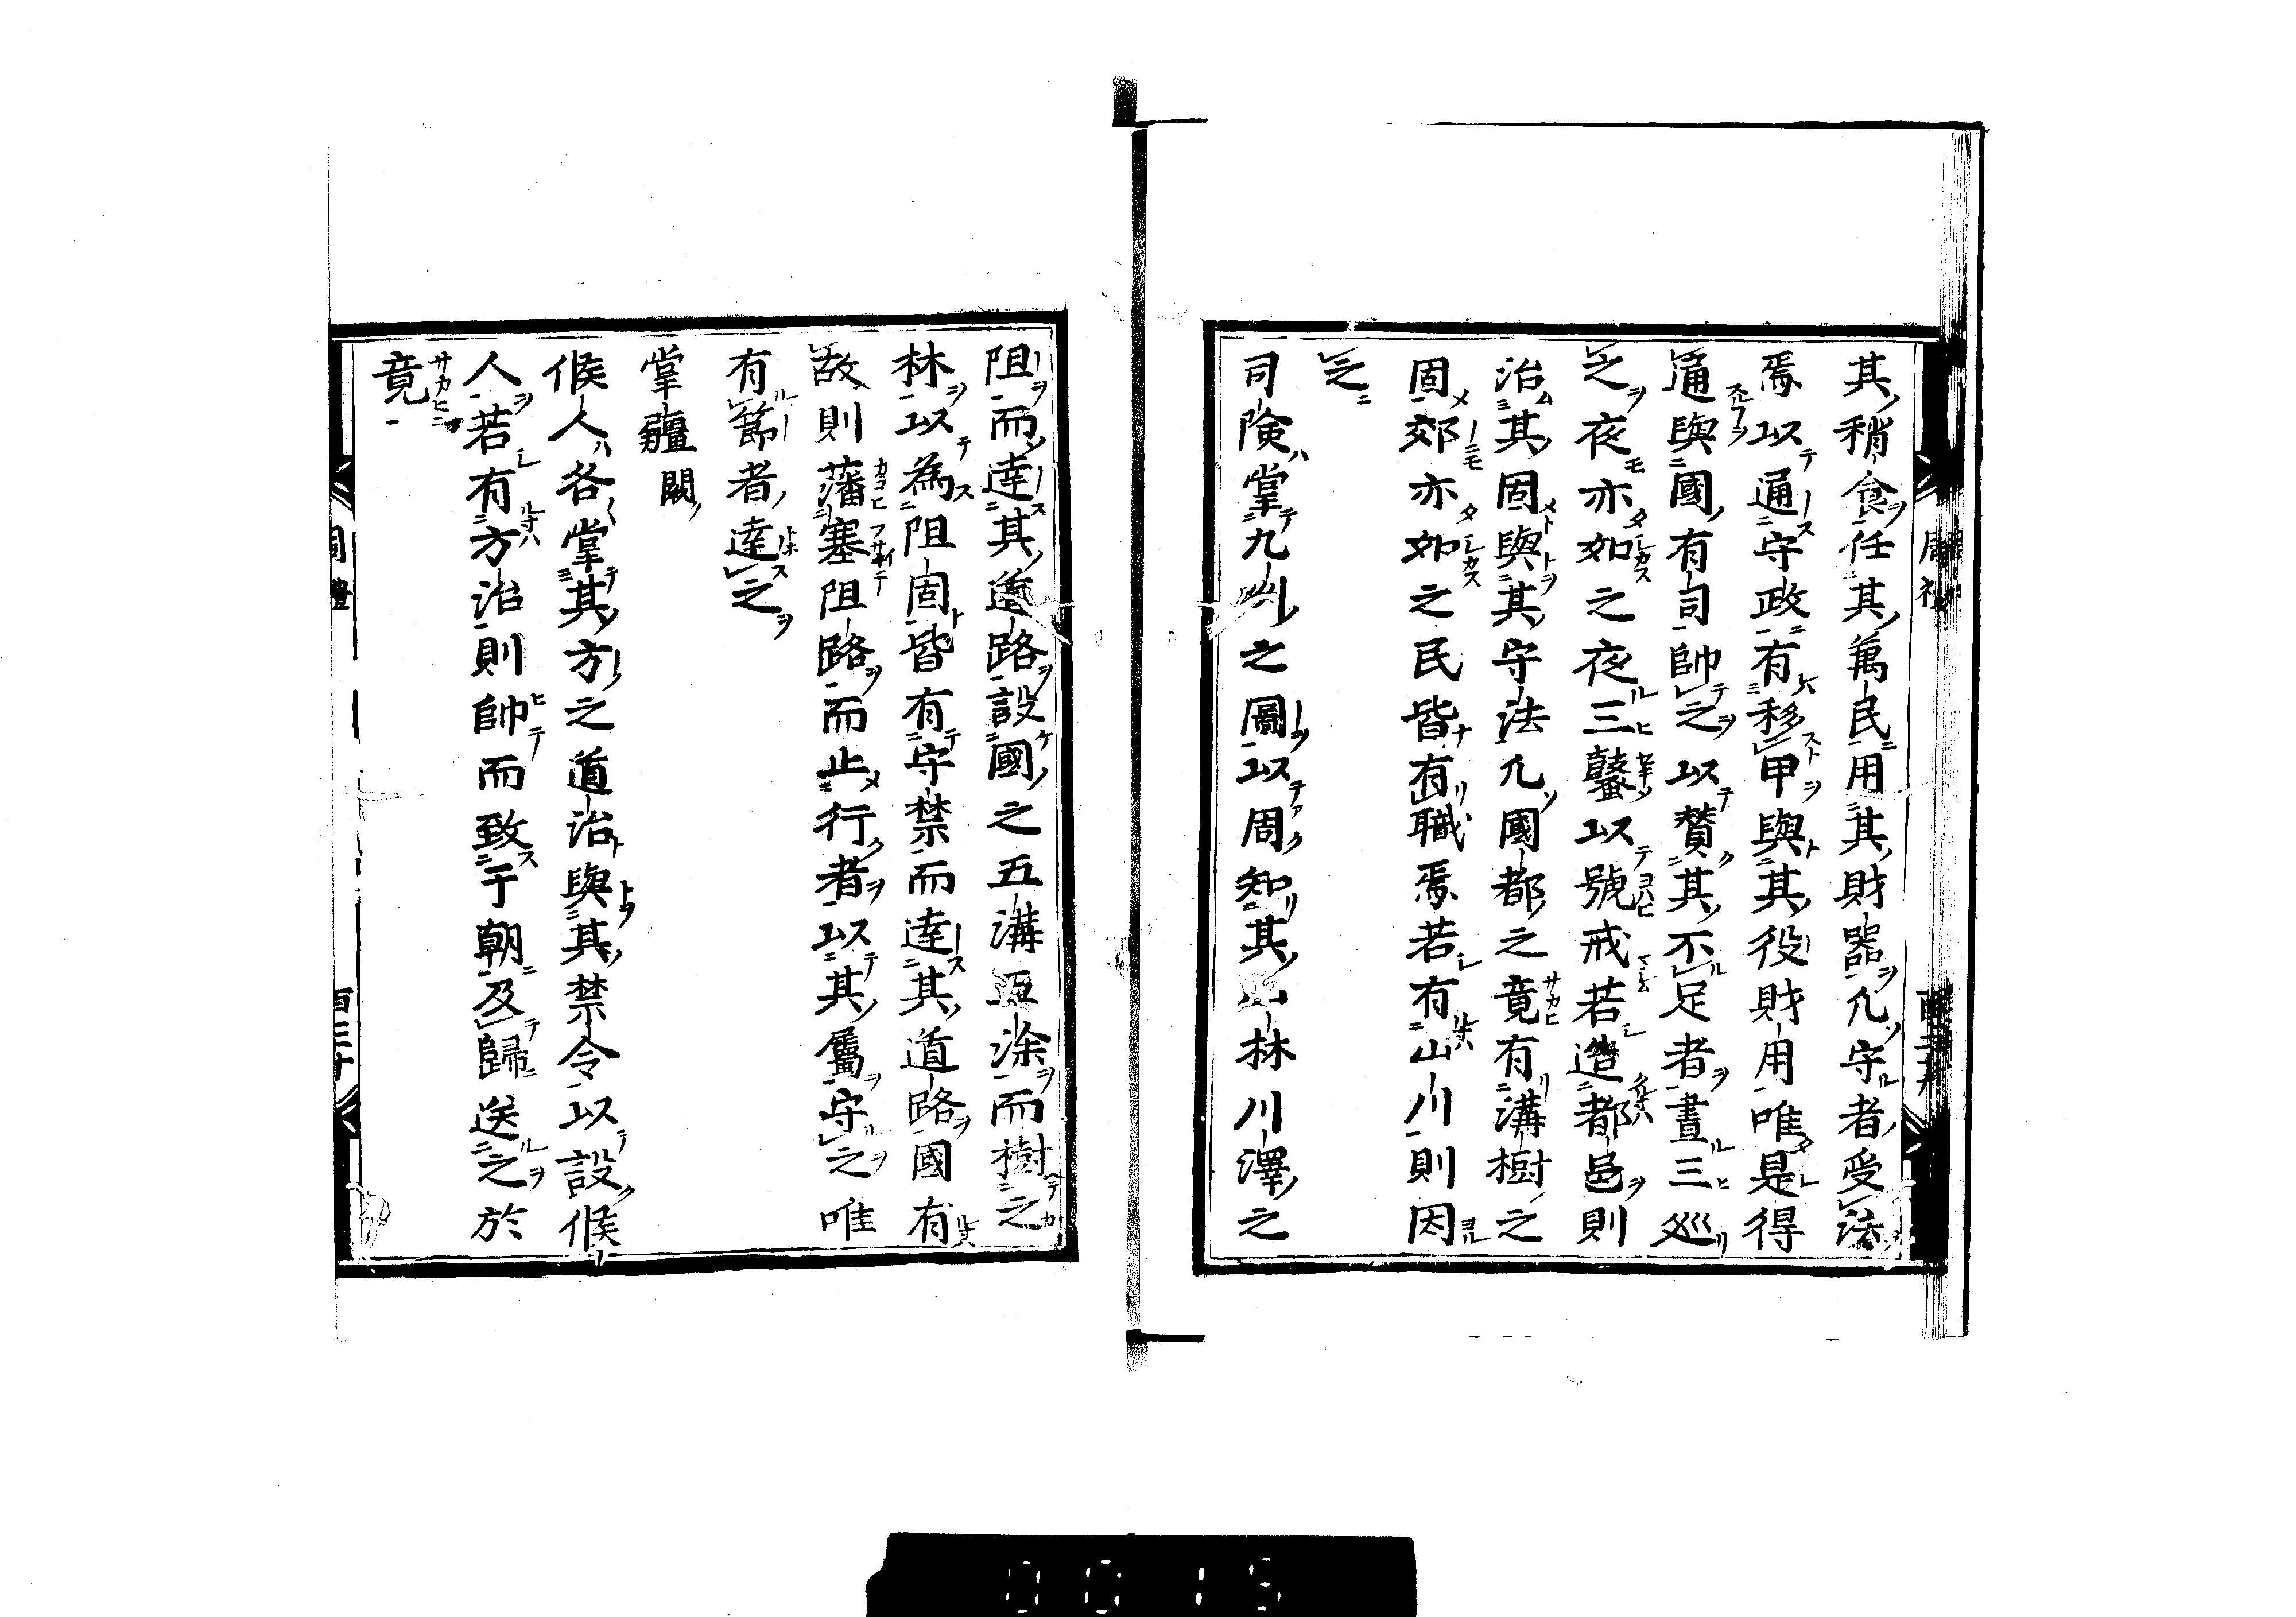 其稍食任其萬民用其財器凢守者受法
焉以通守政有移甲與其役財用唯是得
通與國有司帥之以贊其不足者晝三巡
之夜亦如之夜三鼜以號戒若造都邑則
治其固與其守法凢國都之竟有溝樹之
固郊亦如之民皆有職焉若有山川則因
之
司険掌九州之圖以周知其山林川澤之
阻而達其道路設國之五溝五涂而樹之
林以為阻固皆有守禁而達其道路國有
故則藩塞阻路而止行者以其屬守之唯
有節者達之
掌疆闕
候人各掌其方之道治與其禁令以設候
人若有方治則帥而致于朝及歸送之於
竟
周禮
百三十